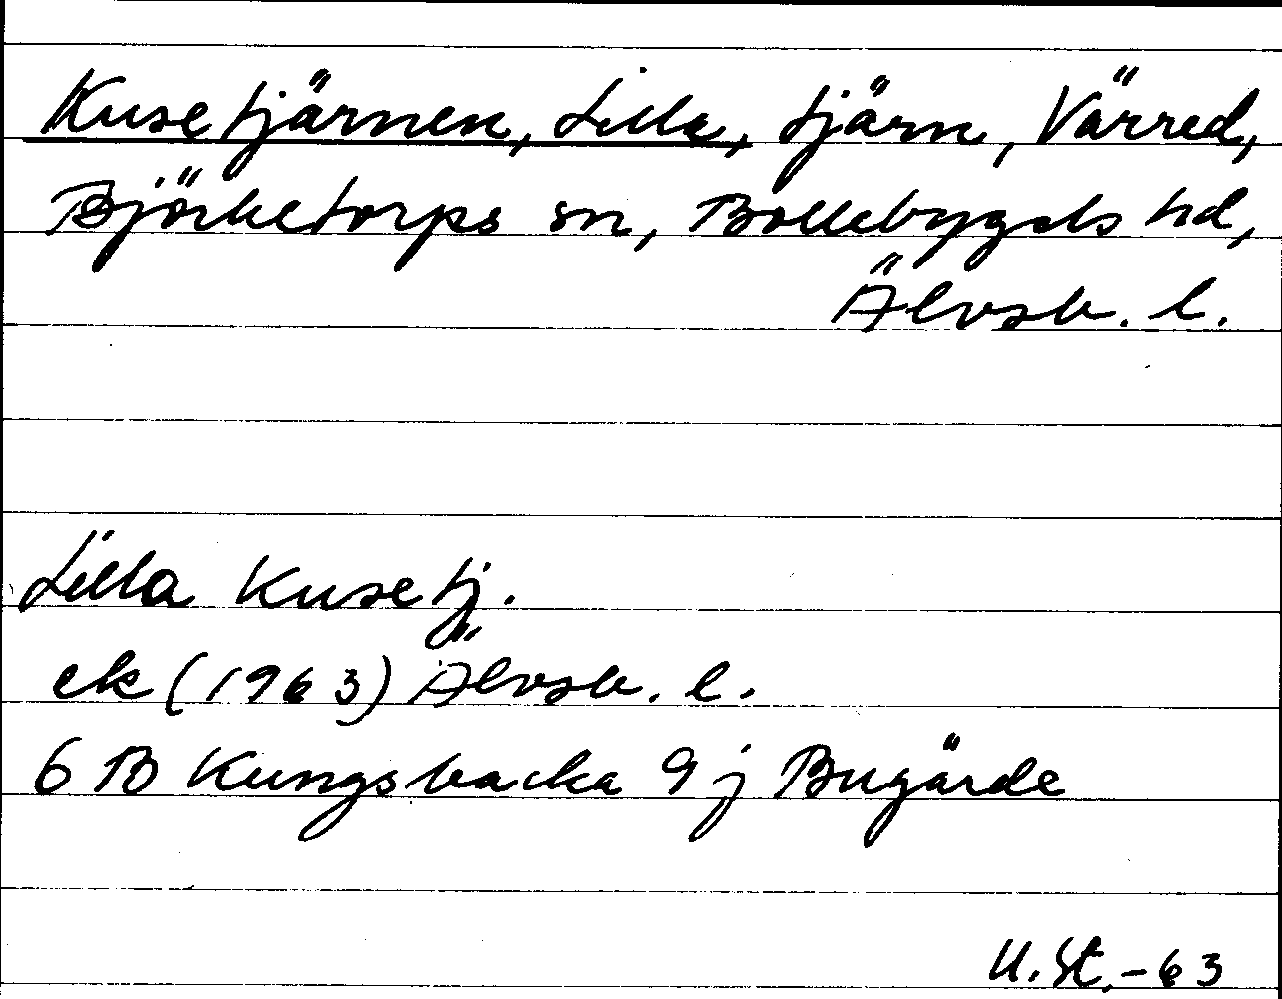 Kusetjärnen, Lilla, tjärn, Värred,
Björketorps sn, Bollebygds hd,
Älvsb. l.
Lilla Kusetj.
ek (1963) Älvsb. l.
6 B Kungsbacka 9 j Bugärde
U. St. -63